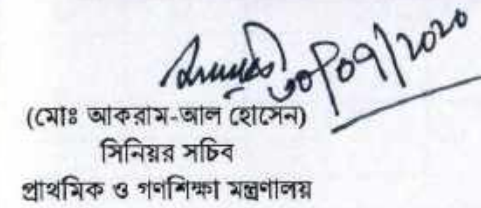 ৩০/০৭/২০২০
(মোঃ আকরাম-আল হোসেন)
সিনিয়র সচিব
প্রাথমিক ও গণশিক্ষা মন্ত্রণালয়